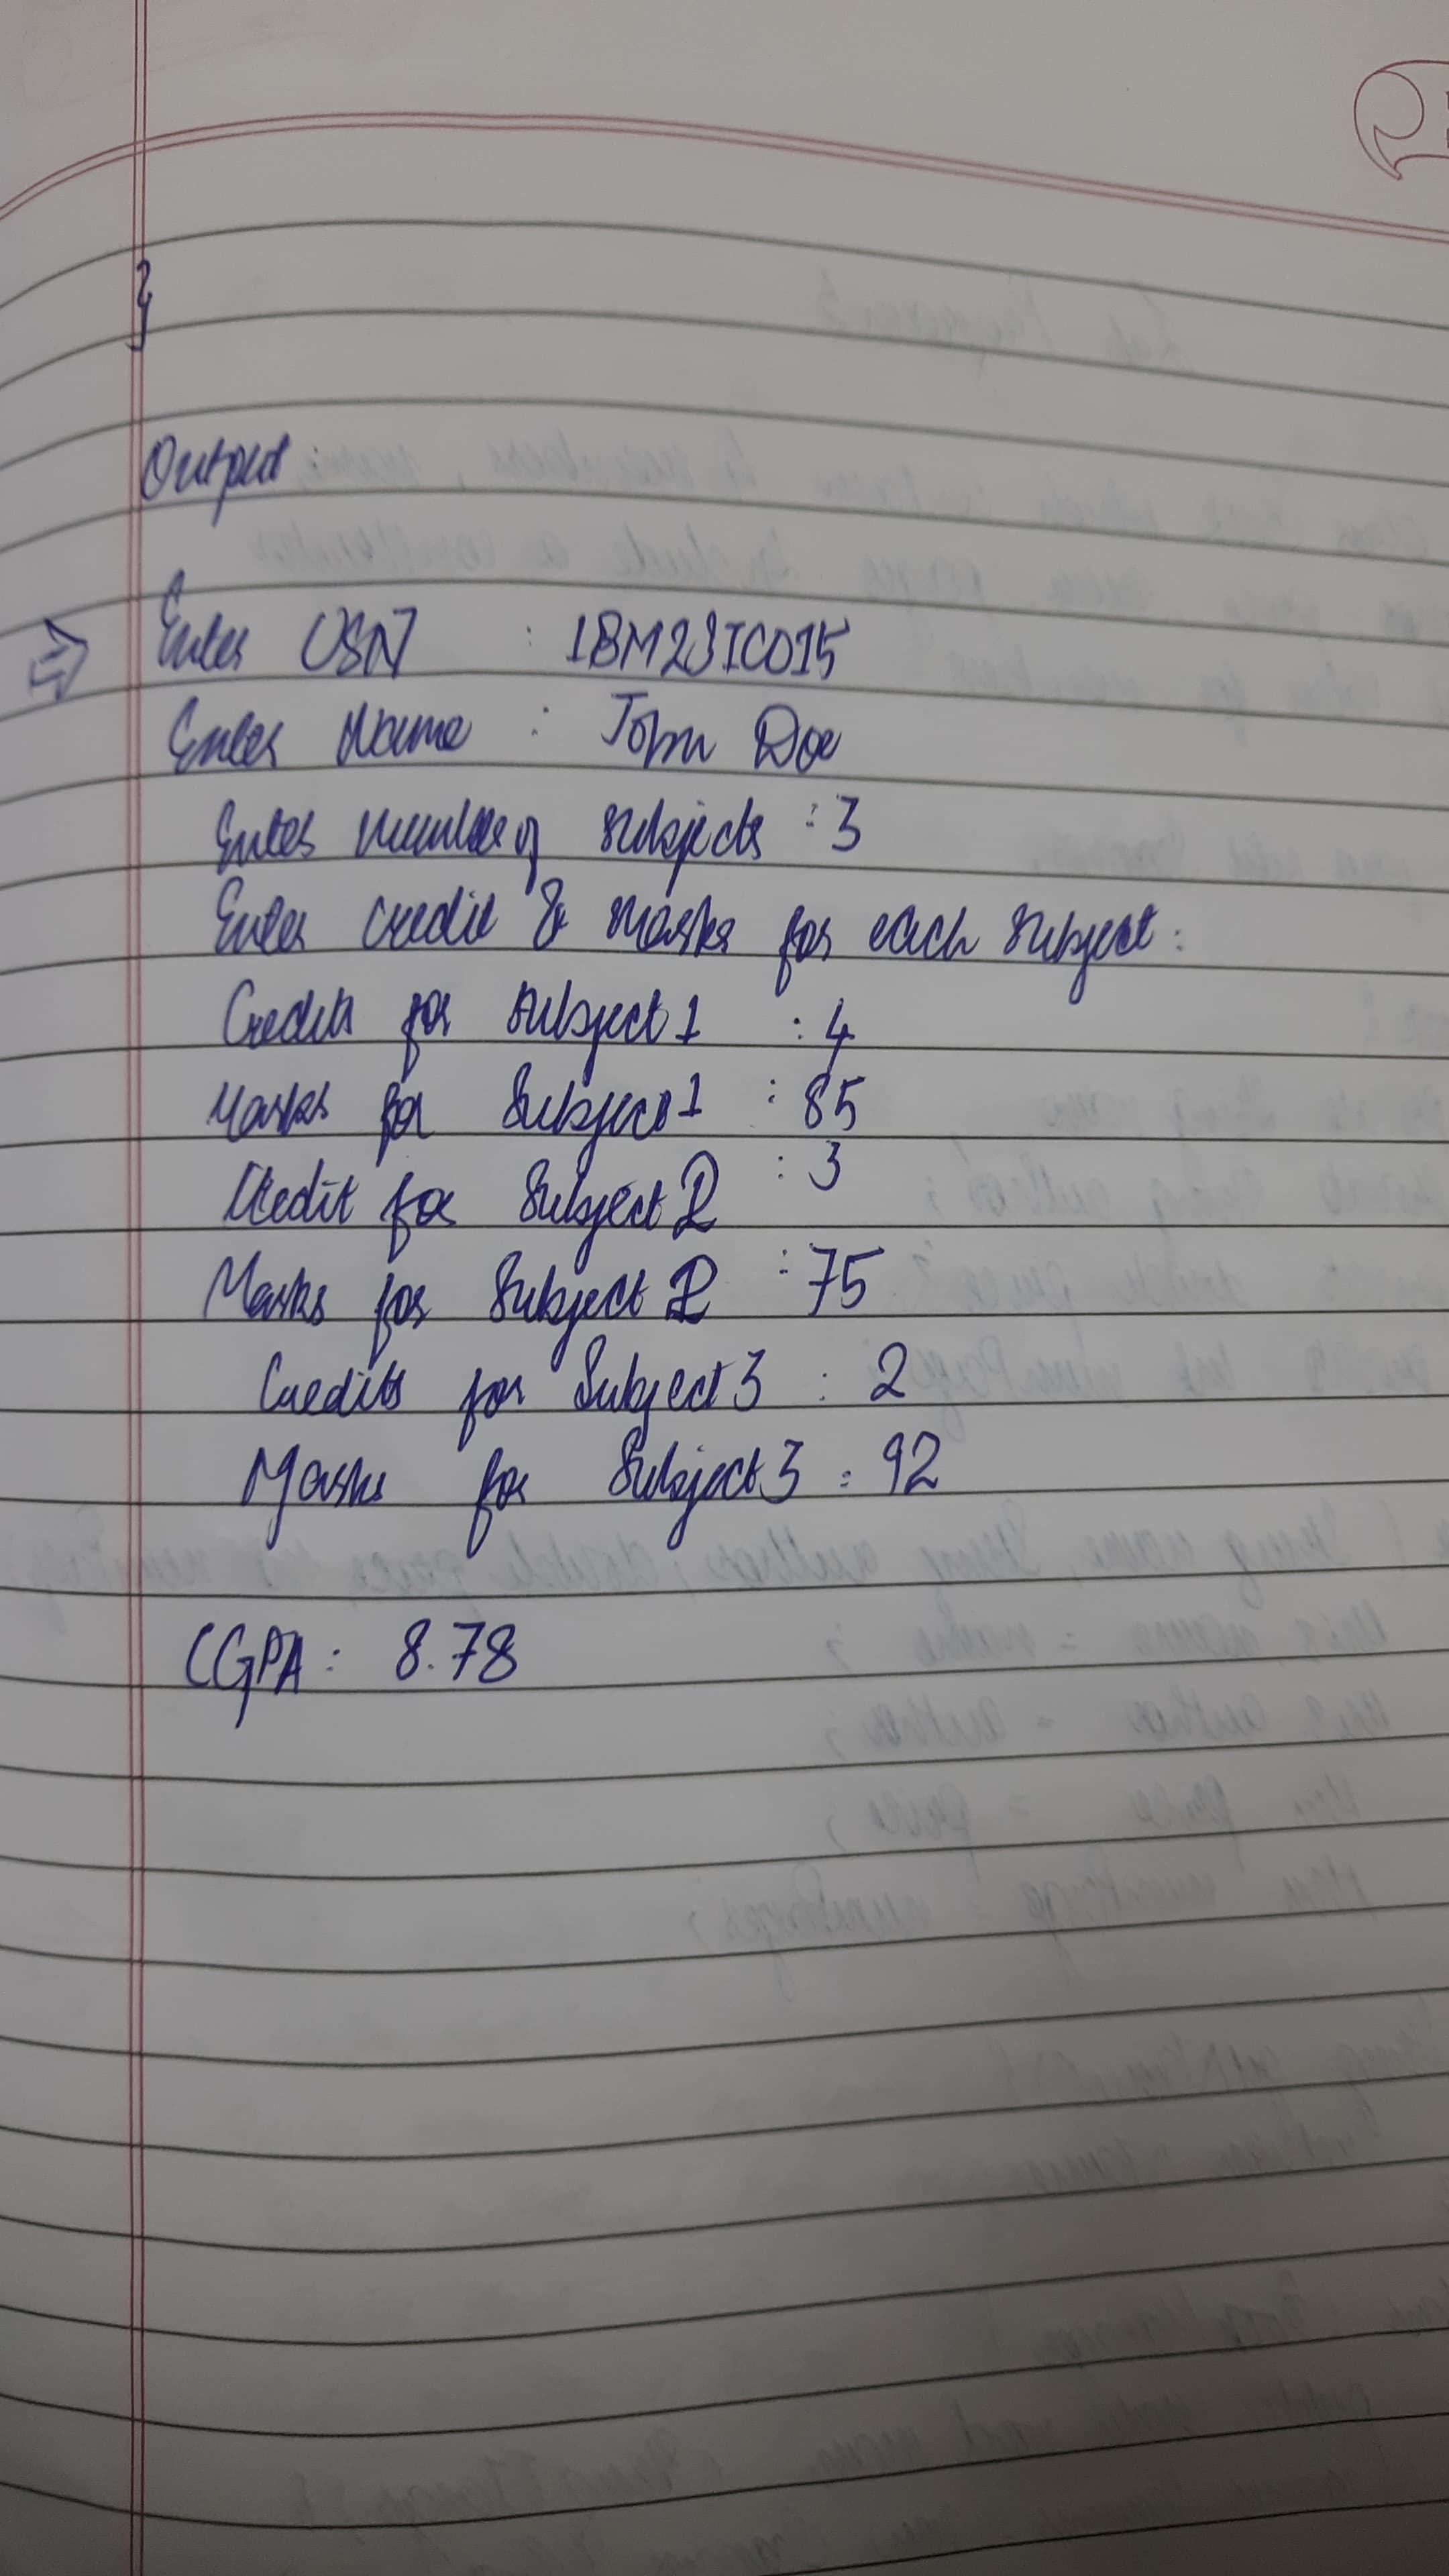 }
Output
⇒ Enter USN : 1BM23IC015
Enter Name : John Doe
Enter number of subjects : 3
Enter credit & marks for each subject :
Credits for subject 1 : 4
Marks for Subject 1 : 85
Credit for Subject 2 : 3
Marks for Subject 2 : 75
Credits for Subject 3 : 2
Marks for Subject 3 : 92
CGPA : 8.78